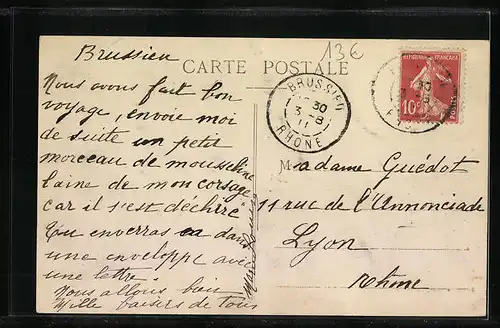 Brussieu
13€
CARTE POSTALE
Nous avons fait bon
voyage, envoie moi
de suite un petit
morceau de mousseline
laine de mon corsage
car il s'est déchiré
Tu enverras ça dans
une enveloppe avec
une lettre
Nous allons bien
Mille baisers de tous
BRUSSIEU
30
3 8
11
RHONE
RÉPUBLIQUE FRANÇAISE
10c
POSTES
Madame Guédot
11 rue de l'Annonciade
Lyon
Rhône